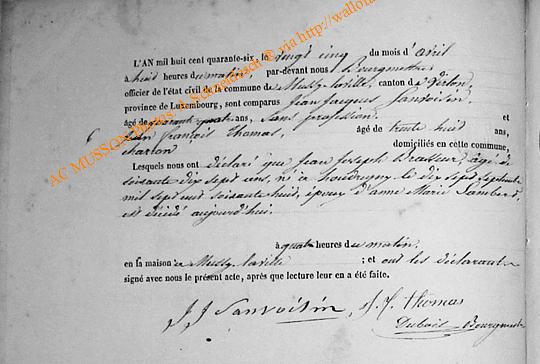 L'AN mil huit cent quarante-six, le vingt cinq du mois d'avril
à huit heures du matin, par-devant nous Bourgmestre
officier de l'état civil de la commune de Mussy-laville, canton de Virton,
province de Luxembourg, sont comparus Jean Jacques Sanvoisin,
âgé de quarante quatre ans, Sans profession, et
Jean François Thomas, âgé de trente huit ans,
charton domiciliés en cette commune,
Lesquels nous ont déclaré que Jean Joseph Brasseur, agé de
soixante dix sept ans, né à houdrigny le dix sept septembre
mil sept cent soixante huit, époux d'anne Marie Lambert,
est décédé aujourd'hui.
à quatre heures du matin,
en sa maison à Mussy-laville ; et ont les déclarants
signé avec nous le présent acte, après que lecture leur en a été faite.
JJ Sanvoisin J. f. thomas
Dubois Bourgmestre
AC MUSSON Photos: A. Schandeloch © via http://wallonia